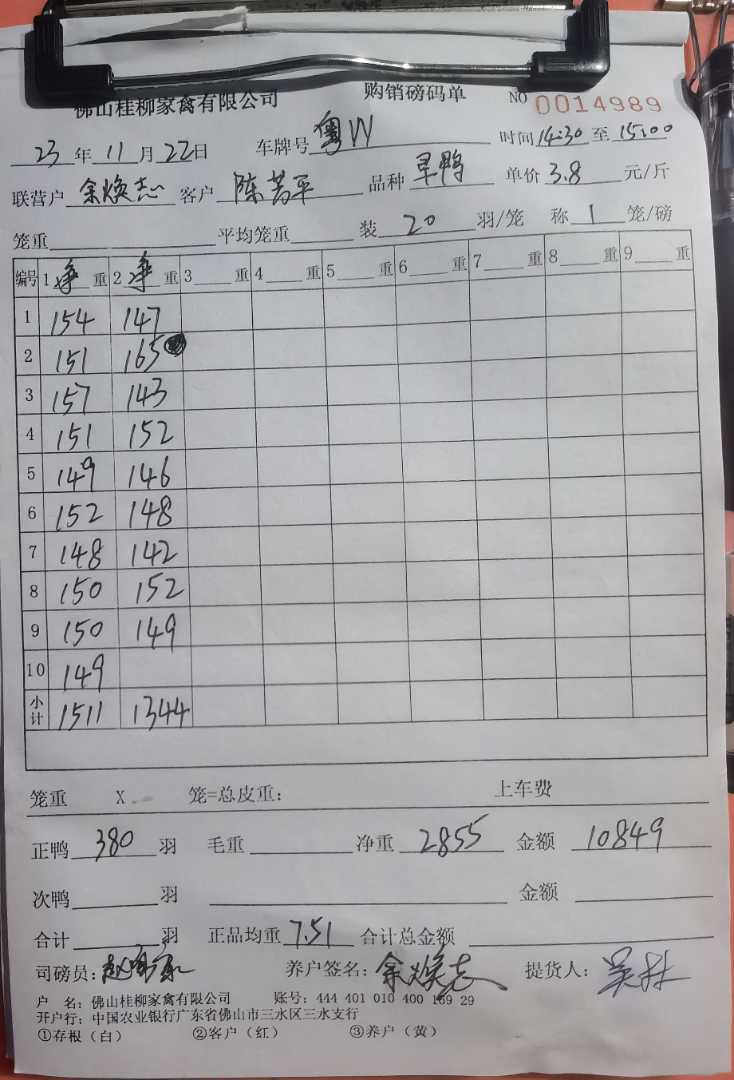 佛山桂柳家禽有限公司 购销磅码单 NO 0014989
23年11月22日 车牌号 粤W 时间14:30至15:00
联营户 余焕志 客户 陈芳平 品种 旱鸭 单价3.8元/斤
笼重 平均笼重 装 20 羽/笼 称 1 笼/磅
编号 1 净重 2 净重 3 重 4 重 5 重 6 重 7 重 8 重 9 重
1 154 147
2 151 165
3 157 143
4 151 152
5 149 146
6 152 148
7 148 142
8 150 152
9 150 149
10 149
小计 1511 1344
笼重 X 笼=总皮重: 上车费
正鸭 380 羽 毛重 净重 2855 金额 10849
次鸭 羽 金额
合计 羽 正品均重 7.51 合计总金额
司磅员: 养户签名: 余焕志 提货人:
户 名: 佛山桂柳家禽有限公司 账号: 444 401 010 400 169 29
开户行: 中国农业银行广东省佛山市三水区三水支行
①存根(白) ②客户(红) ③养户(黄)